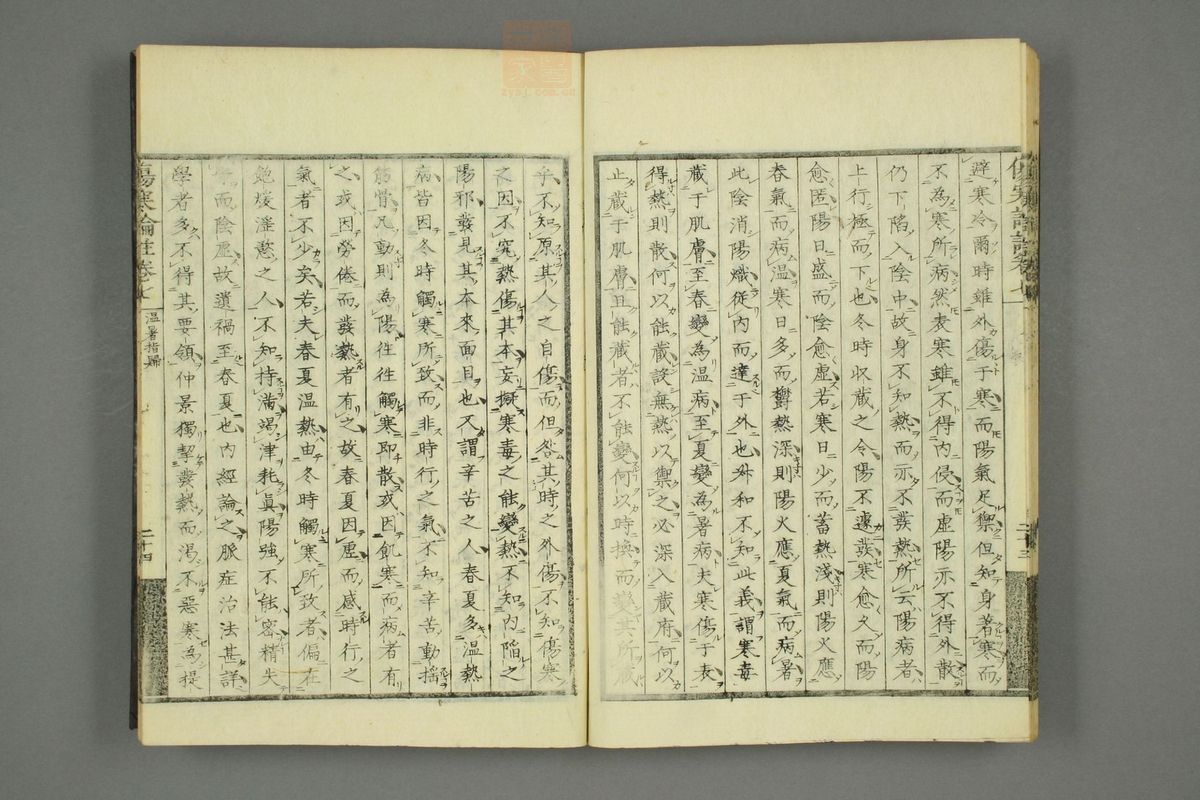 避寒冷爾時雖外傷于寒而陽氣足禦但知身著寒而
不為寒所病然表寒雖不得內侵而虛陽亦不得外散
仍下陷入陰中故身不知熱而亦不發熱所云陽病者
上行極而下也冬時収藏之令陽不遽發寒愈久而陽
愈匿陽日盛而陰愈虛若寒日少而蓄熱淺則陽火應
春氣而病溫寒日多而鬱熱深則陽火應夏氣而病暑
此陰消陽熾從內而達于外也叔和不知此義謂寒毒
藏于肌膚至春變為溫病至夏變為暑病夫寒傷于表
得熱則散何以能藏設無熱以禦之必深入藏府何以
止藏于肌膚且能藏者不能變何以時換而變其所
傷寒論註卷七
二十三
乎不知原其人之自傷而但咎其時之外傷不知傷寒
之因不究熱傷其本妄擬寒毒之能變熱不知內陷之
陽邪發見其本來面目也又謂辛苦之人春夏多溫熱
病皆因冬時觸寒所致而非時行之氣不知辛苦動搖
筋骨凡動則為陽往往觸寒即散或因飢寒而病者有
之或因勞倦而發熱者有之故春夏因虛而感時行之
氣者不少矣若夫春夏溫熱由冬時觸寒所致者偏在
飽煖淫慾之人不知持滿竭津耗眞陽強不能密精失
而陰虛故遺禍至春夏也內經論之脈症治法甚詳
學者多不得其要領仲景獨挈發熱而渴不惡寒為提
傷寒論註卷七
溫暑指歸
二十四
zysj.com.cn